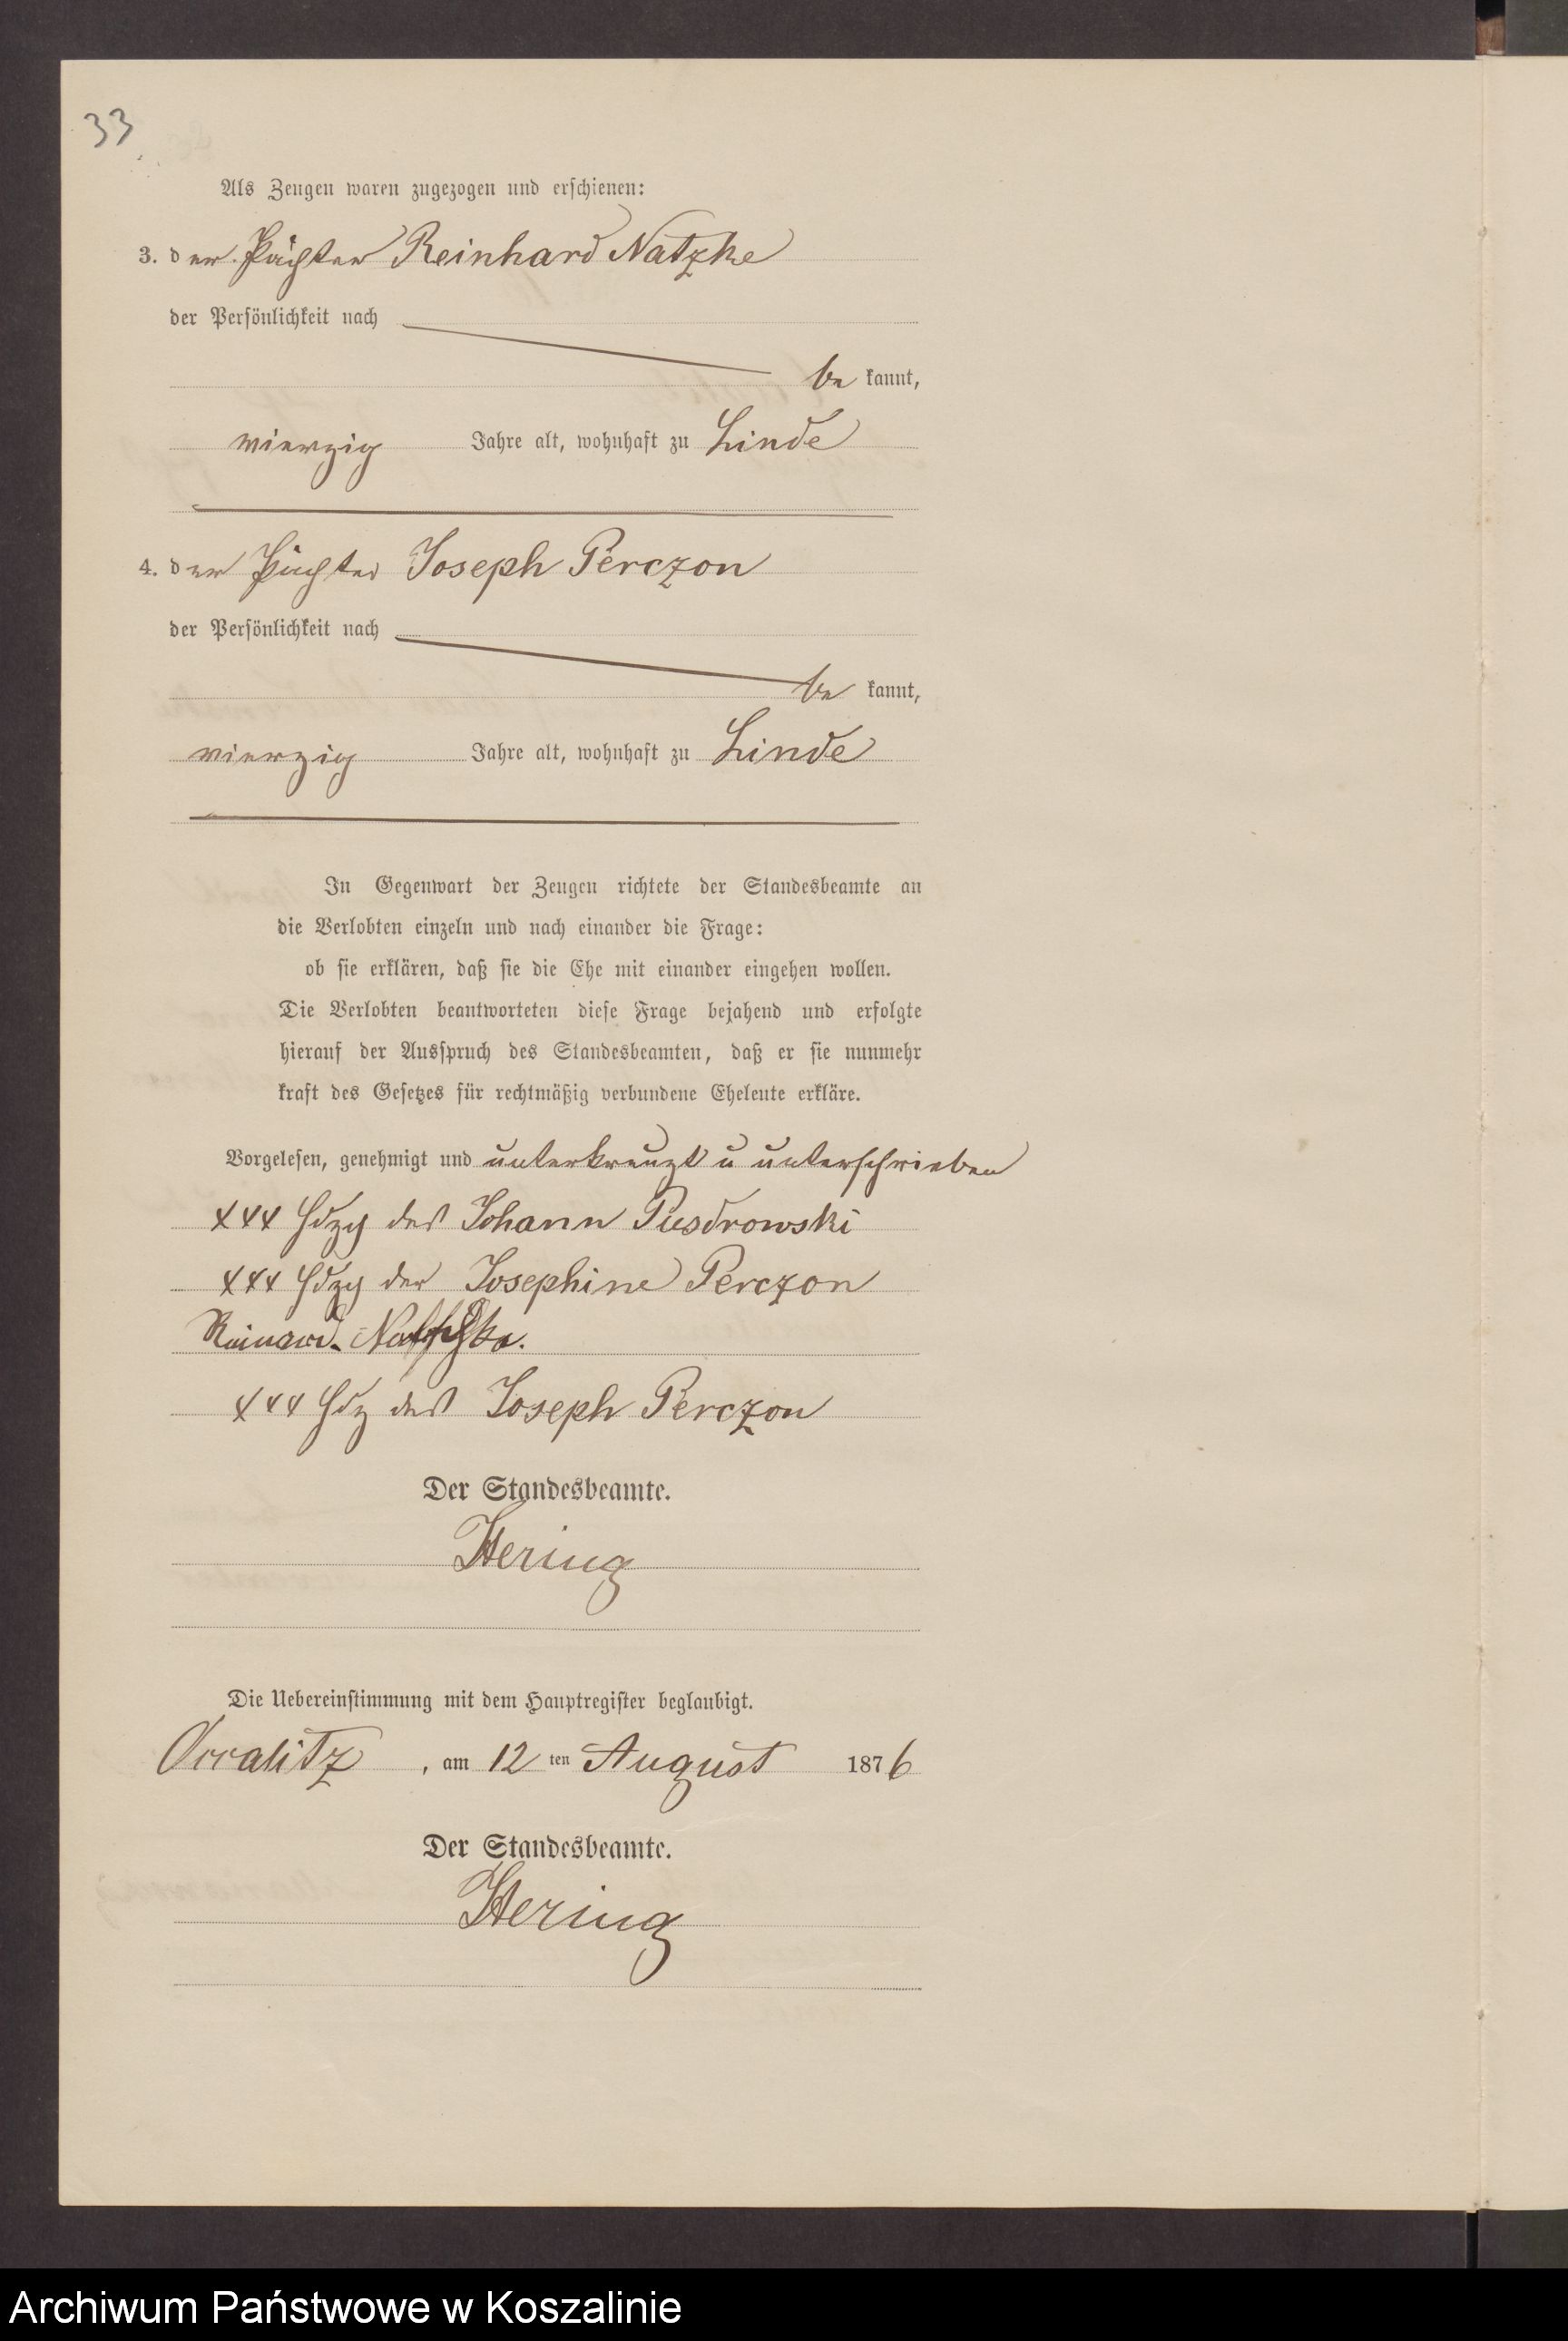 33
Als Zeugen waren zugezogen und erschienen:
3. der Pächter Reinhard Natzke
der Persönlichkeit nach
be kannt,
vierzig Jahre alt, wohnhaft zu Linde
4. der Pächter Joseph Perczon
der Persönlichkeit nach
be kannt,
vierzig Jahre alt, wohnhaft zu Linde
In Gegenwart der Zeugen richtete der Standesbeamte an
die Verlobten einzeln und nach einander die Frage:
ob sie erklären, daß sie die Ehe mit einander eingehen wollen.
Die Verlobten beantworteten diese Frage bejahend und erfolgte
hierauf der Ausspruch des Standesbeamten, daß er sie nunmehr
kraft des Gesetzes für rechtmäßig verbundene Eheleute erkläre.
Vorgelesen, genehmigt und unterkreuzt u unterschrieben
xxx Hdzg des Johann Pusdrowski
xxx Hdzg der Josephine Perczon
Reinard.
xxx Hdz des Joseph Perczon
Der Standesbeamte.
Hering
Die Uebereinstimmung mit dem Hauptregister beglaubigt.
, am 12 ten August 1876
Der Standesbeamte.
Hering
Archiwum Państwowe w Koszalinie